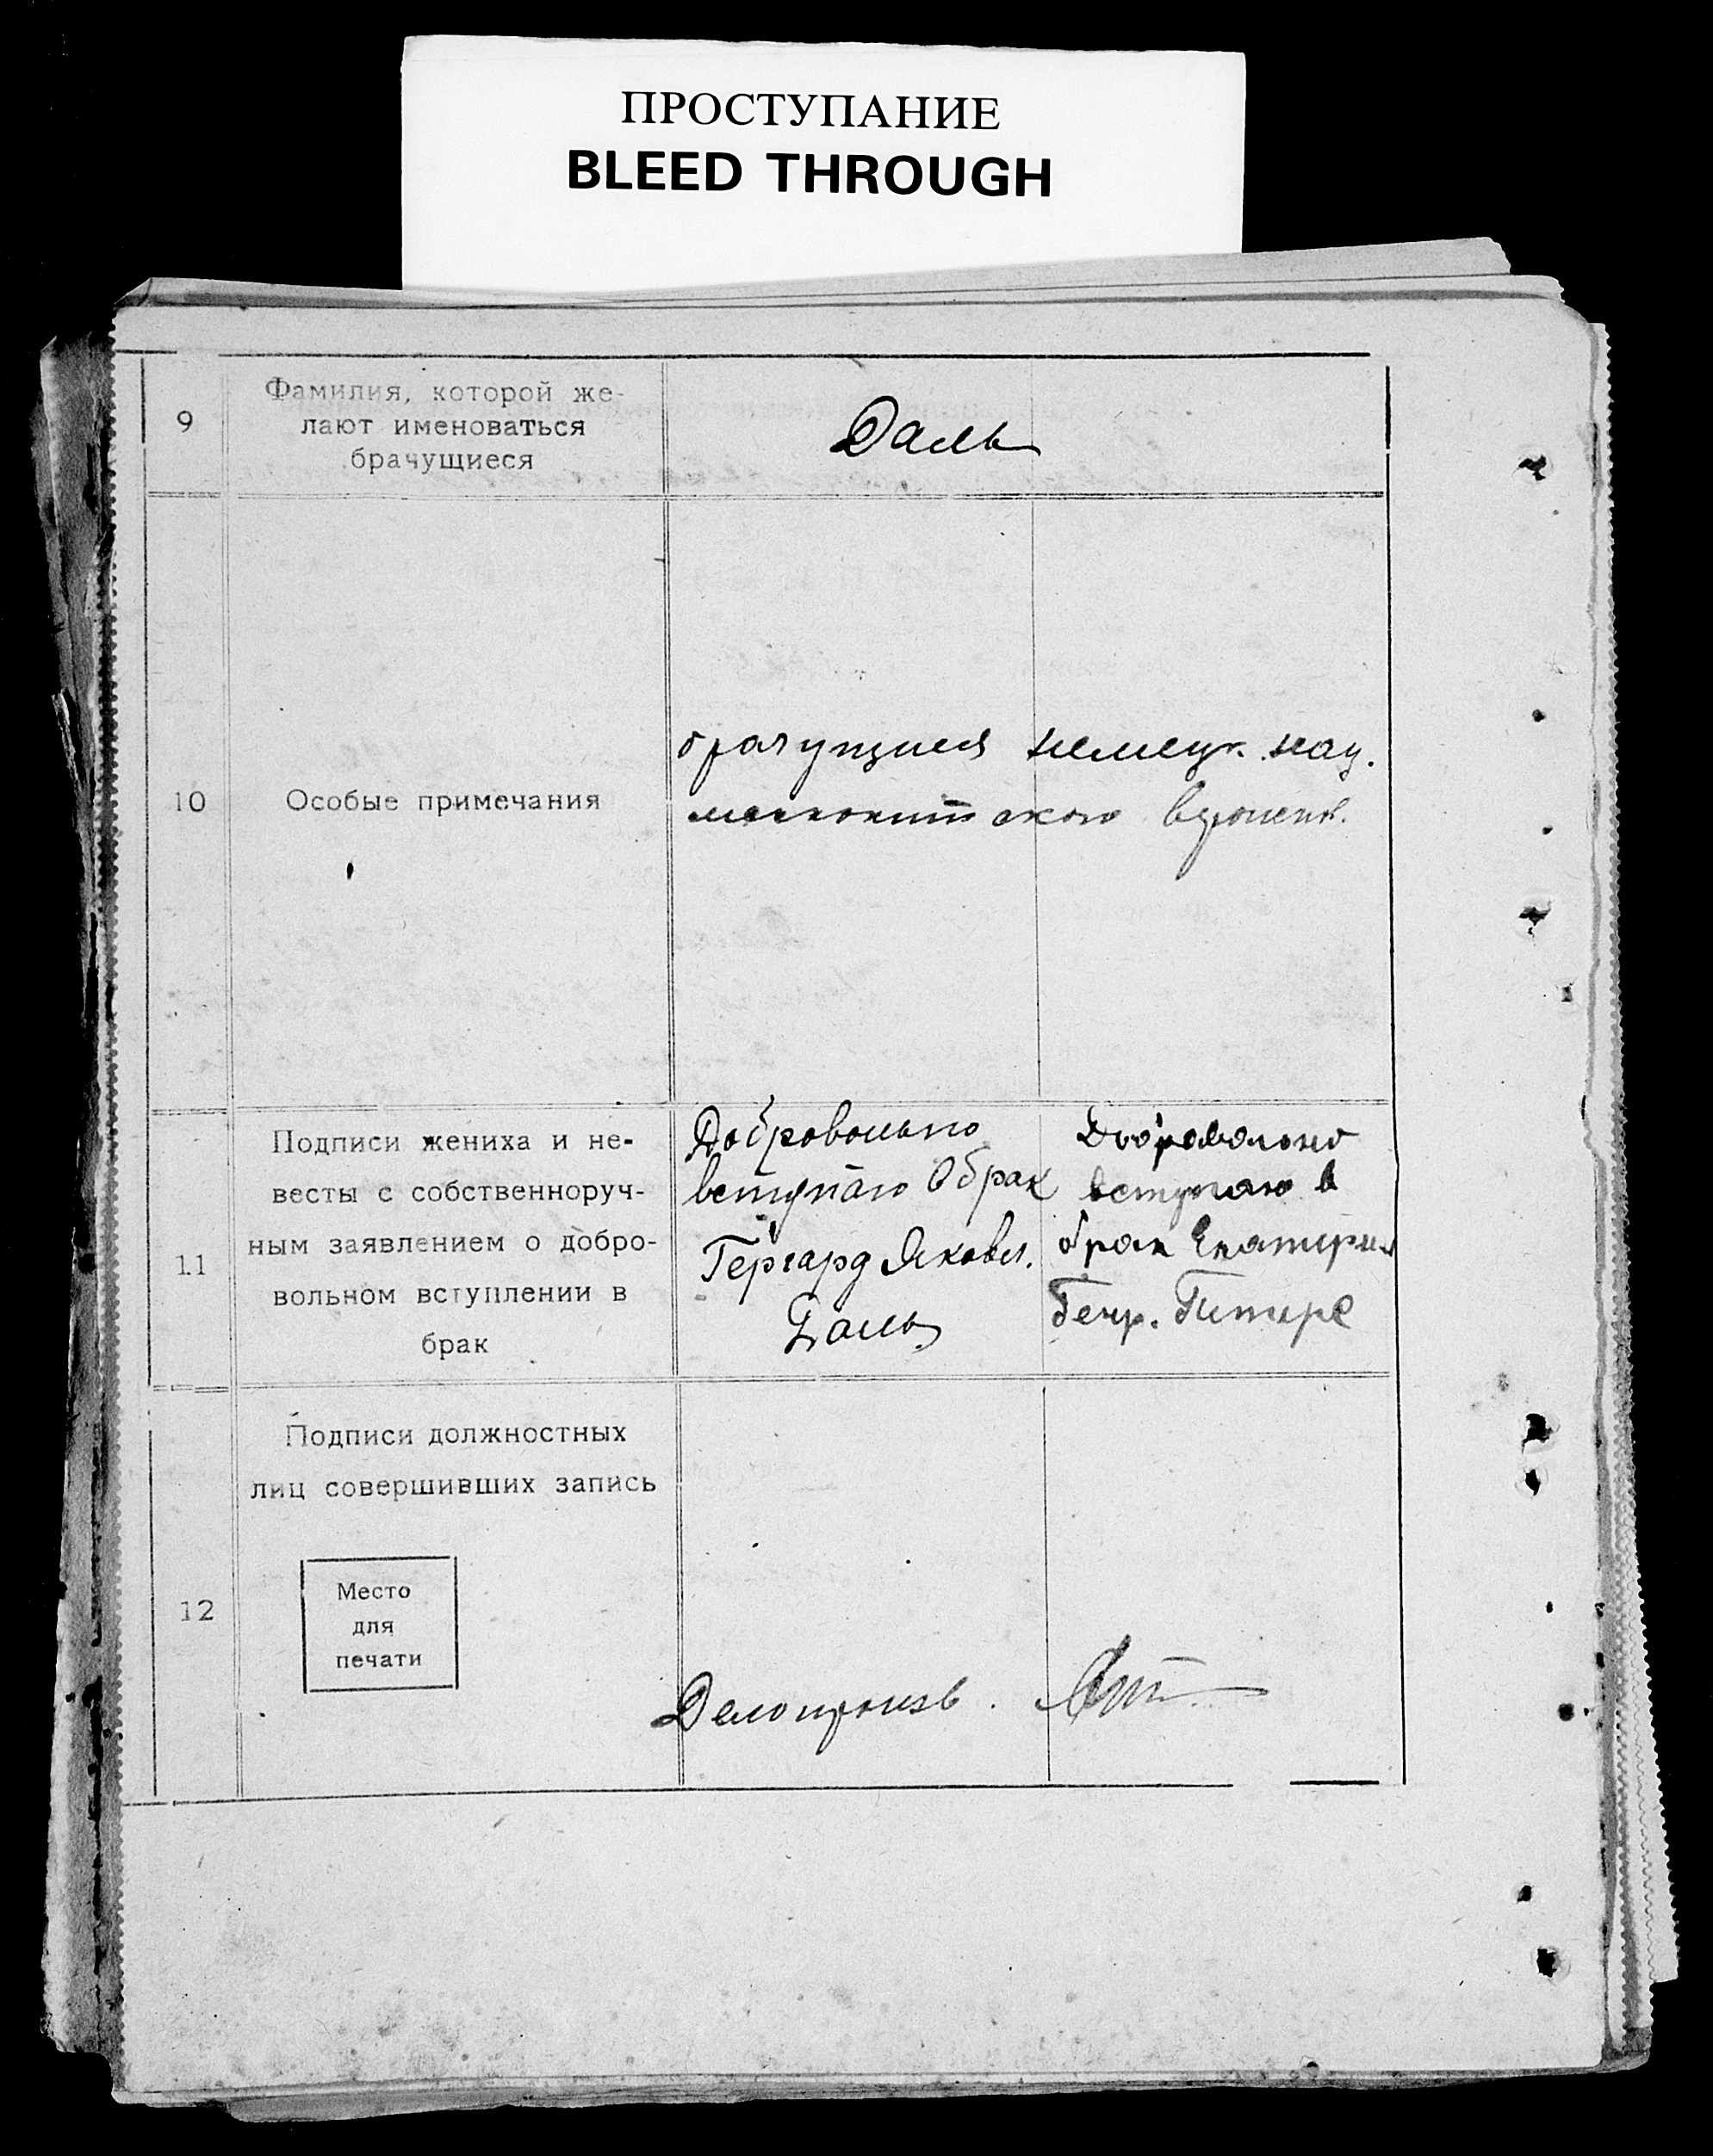 ПРОСТУПАНИЕ
BLEED THROUGH
9
Фамилия, которой же-
лают именоваться
брачущиеся
Даль
10
Особые примечания
брачущиеся немецк. нац.
меннонитского вероисп.
11
Подписи жениха и не-
весты с собственноруч-
ным заявлением о добро-
вольном вступлении в
брак
Добровольно
вступаю в брак
Гергард Яковл.
Даль
Добровольно
вступаю в
брак Екатерин
Генр. Петерс
12
Подписи должностных
лиц совершивших запись
Место
для
печати
Делопроизв.